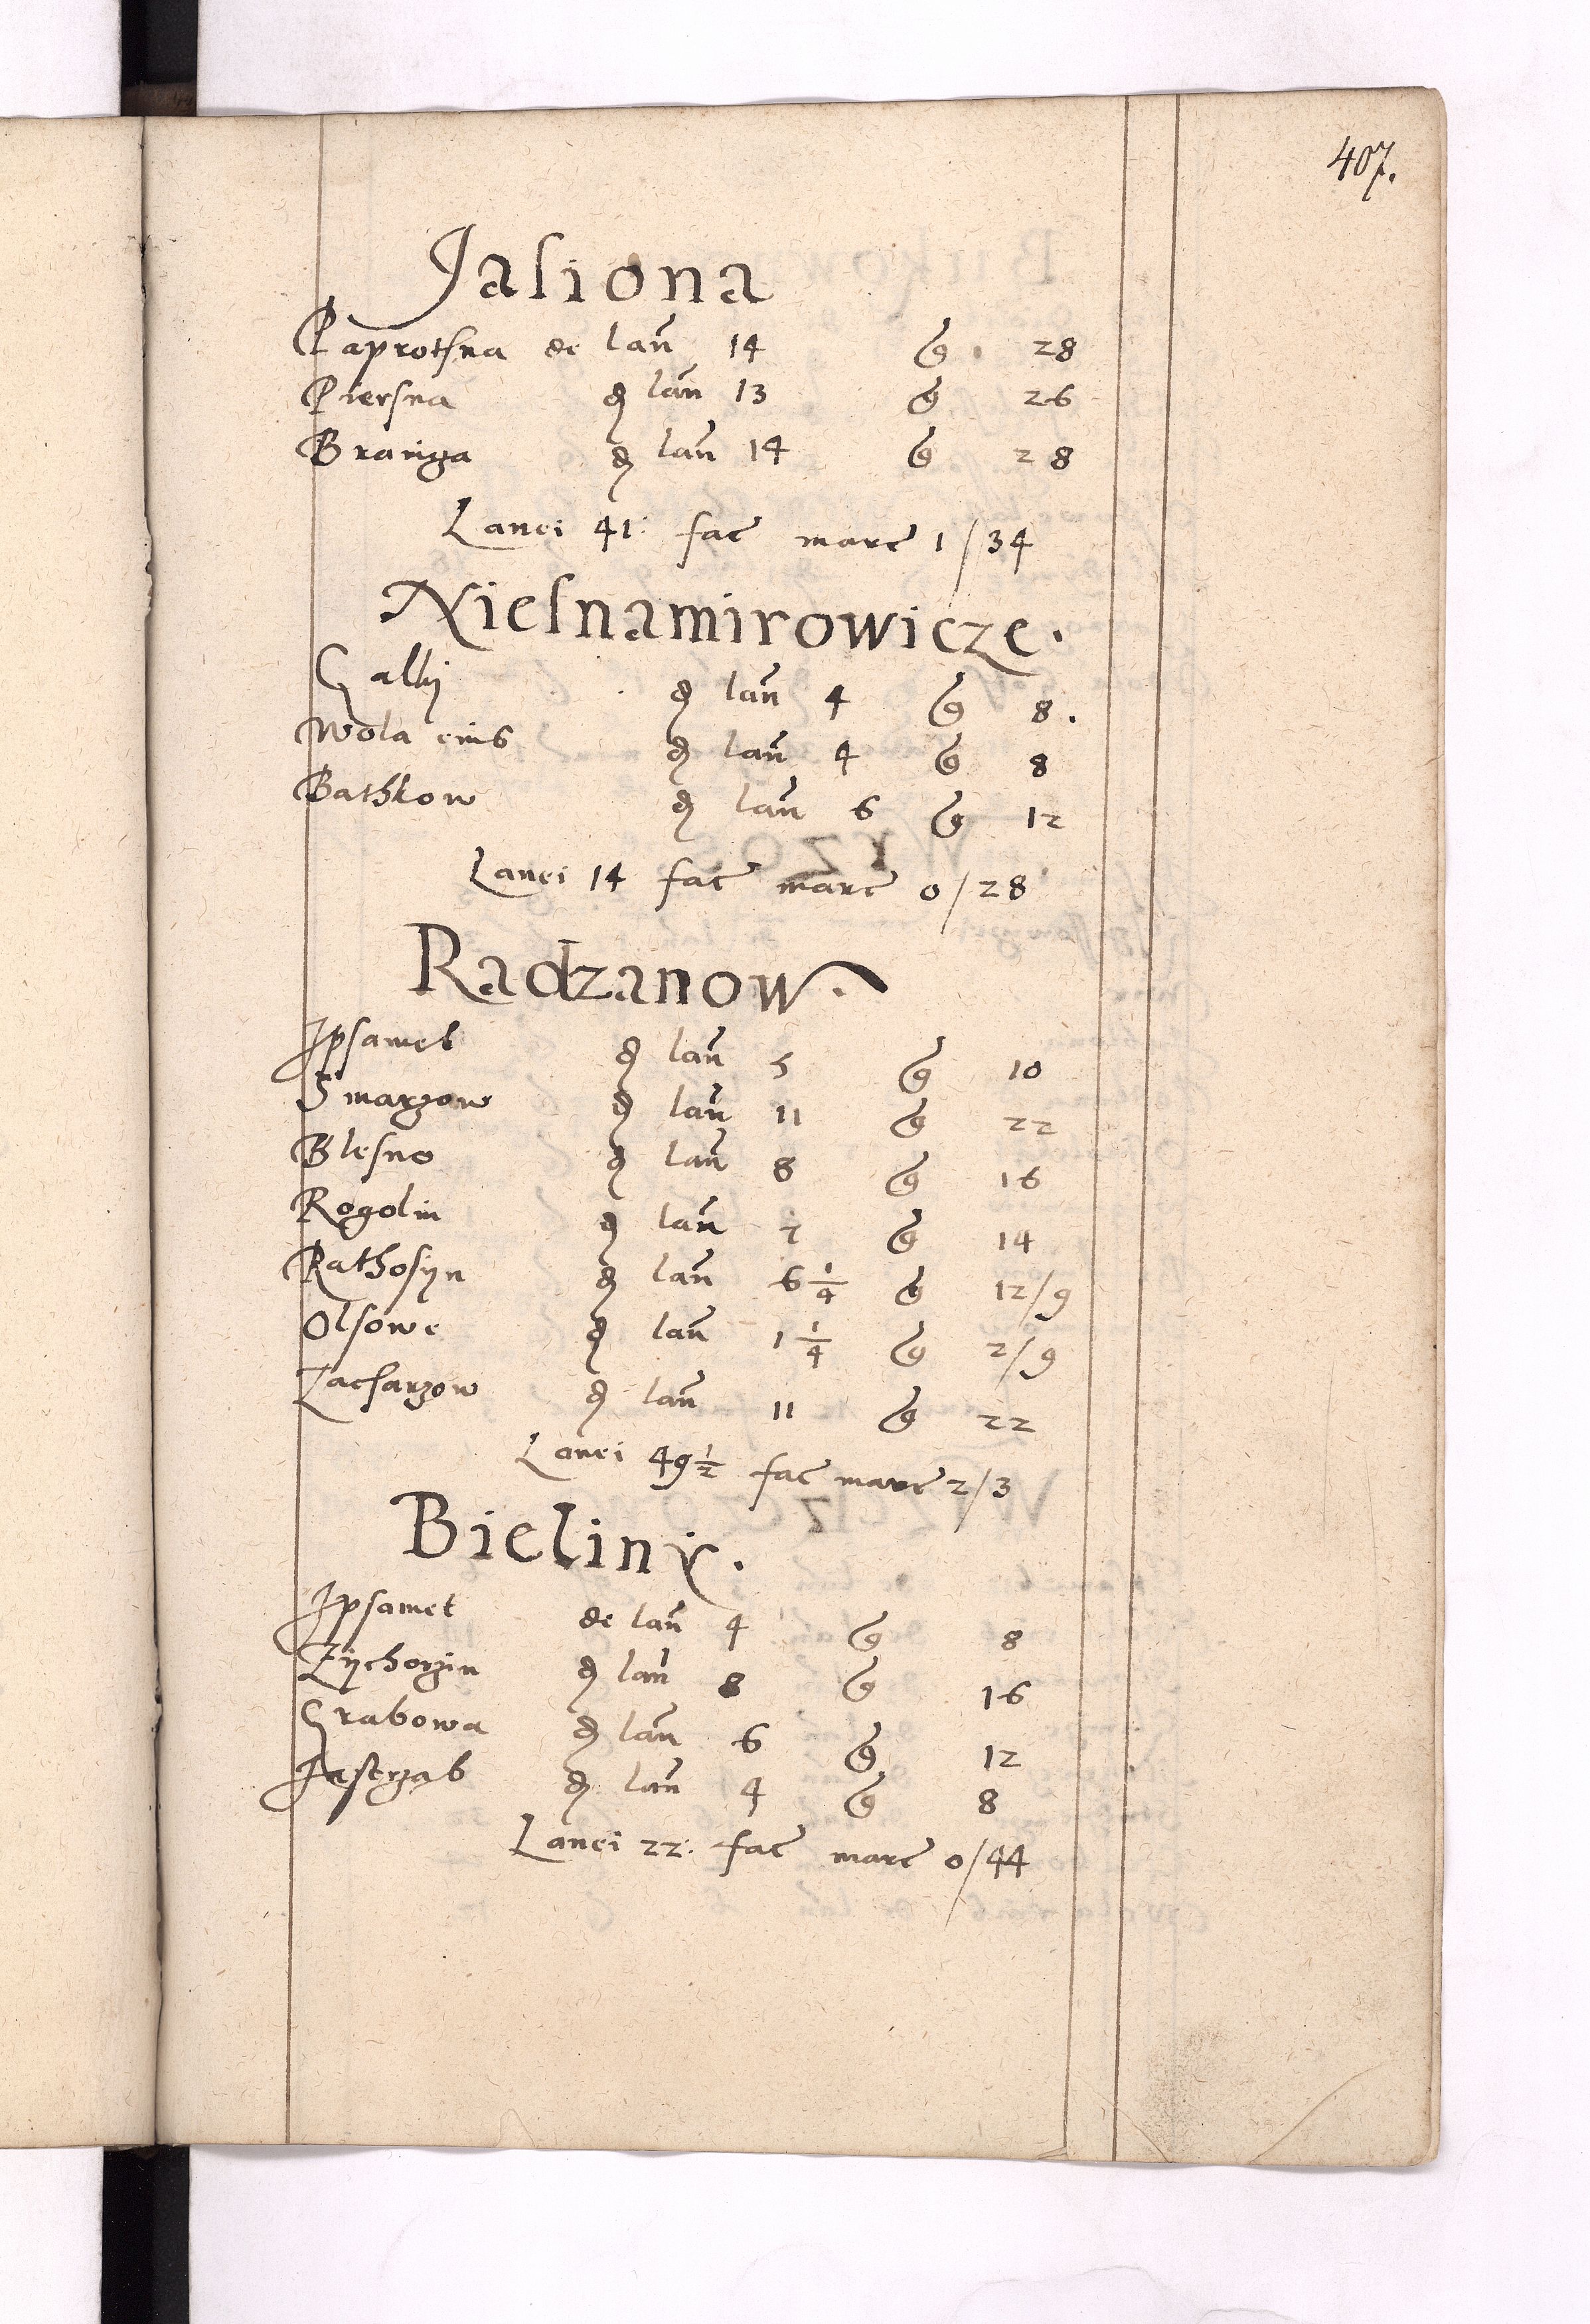 407.
Jasiona
Paprotsna de lan 14 g 28
Piersna d lan 13 g 26
Braniga d lan 14 g 28
Lanei 41 fac marc 1/34
Niesnamirowicze.
Galki d lan 4 g 8.
Wola eius d lan 4 g 8
Bathkow d lan 6 g 12
Lanei 14 fac marc 0/28
Radzanow.
Ipsamet d lan 5 g 10
Smarzow d lan 11 g 22
Blesno d lan 8 g 16
Rogolin d lan 7 g 14
Rathosyn d lan 6 1/4 g 12/9
Olsowe d lan 1 1/4 g 2/9
Zacharzow d lan 11 g 22
Lanei 49 1/2 fac marc 2/3
Bieliny.
Ipsamet de lan 4 g 8
Zychorzin d lan 8 g 16
Grabowa d lan 6 g 12
Jastrzab d lan 4 g 8
Lanei 22 fac marc 0/44